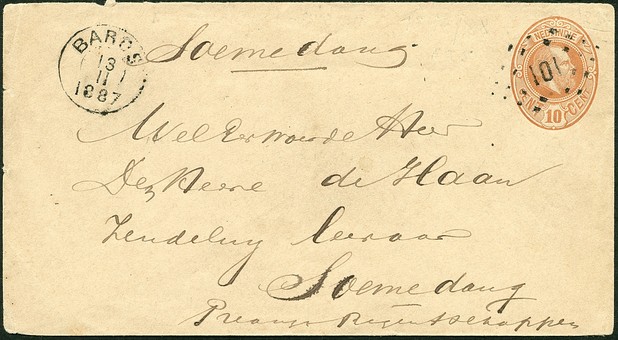 BAROS
13
11
1887
Soemedang
NED. INDIË
101
10 CENT
WelEerwaarde Heer
Den Heere de Haan
Zendeling leeraar
Soemedang
Preanger Regentschappen